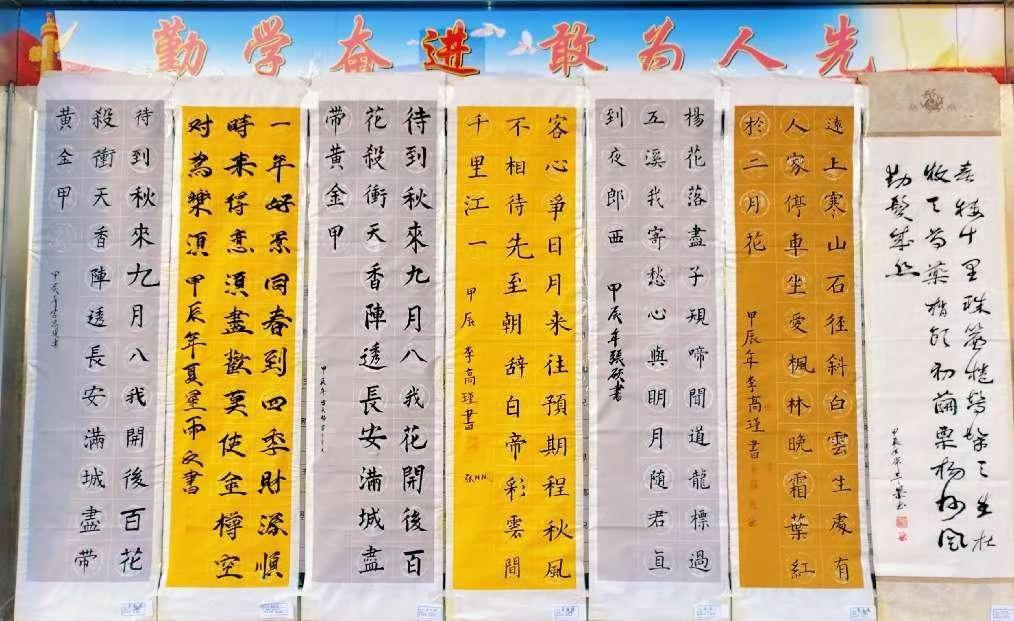 勤学奋进 敢为人先
十里珠簾捲髣髴三生杜
牧之芍藥梢頭初繭栗楊州風
物鬢成絲
遠上寒山石径斜白雲生處有
人家停車坐愛楓林晚霜葉紅
於二月花
甲辰年李高瑾書
楊花落盡子規啼聞道龍標過
五溪我寄愁心與明月随君直
到夜郎西
甲辰年張欣書
客心爭日月来往預期程秋風
不相待先至朝辞白帝彩雲間
千里江一
甲辰 李高瑾書
待到秋來九月八我花開後百
花殺衝天香陣透長安滿城盡
帶黄金甲
一年好景同春到四季財源順
時来得意須盡歡莫使金樽空
对為樂須 甲辰年夏星雨文書
待到秋來九月八我開後百花
殺衝天香陣透長安滿城盡帶
黄金甲